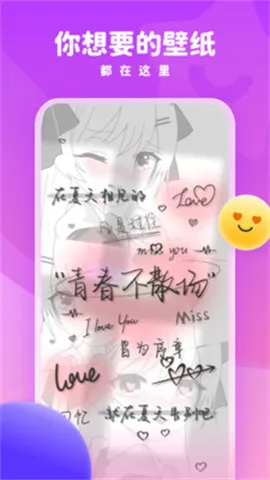 你想要的壁纸
都在这里
在夏天相见的
Love
凡是过往
miss you
“青春不散场”
I love You
Miss
皆为序章
Love
回忆
就在夏天告别吧